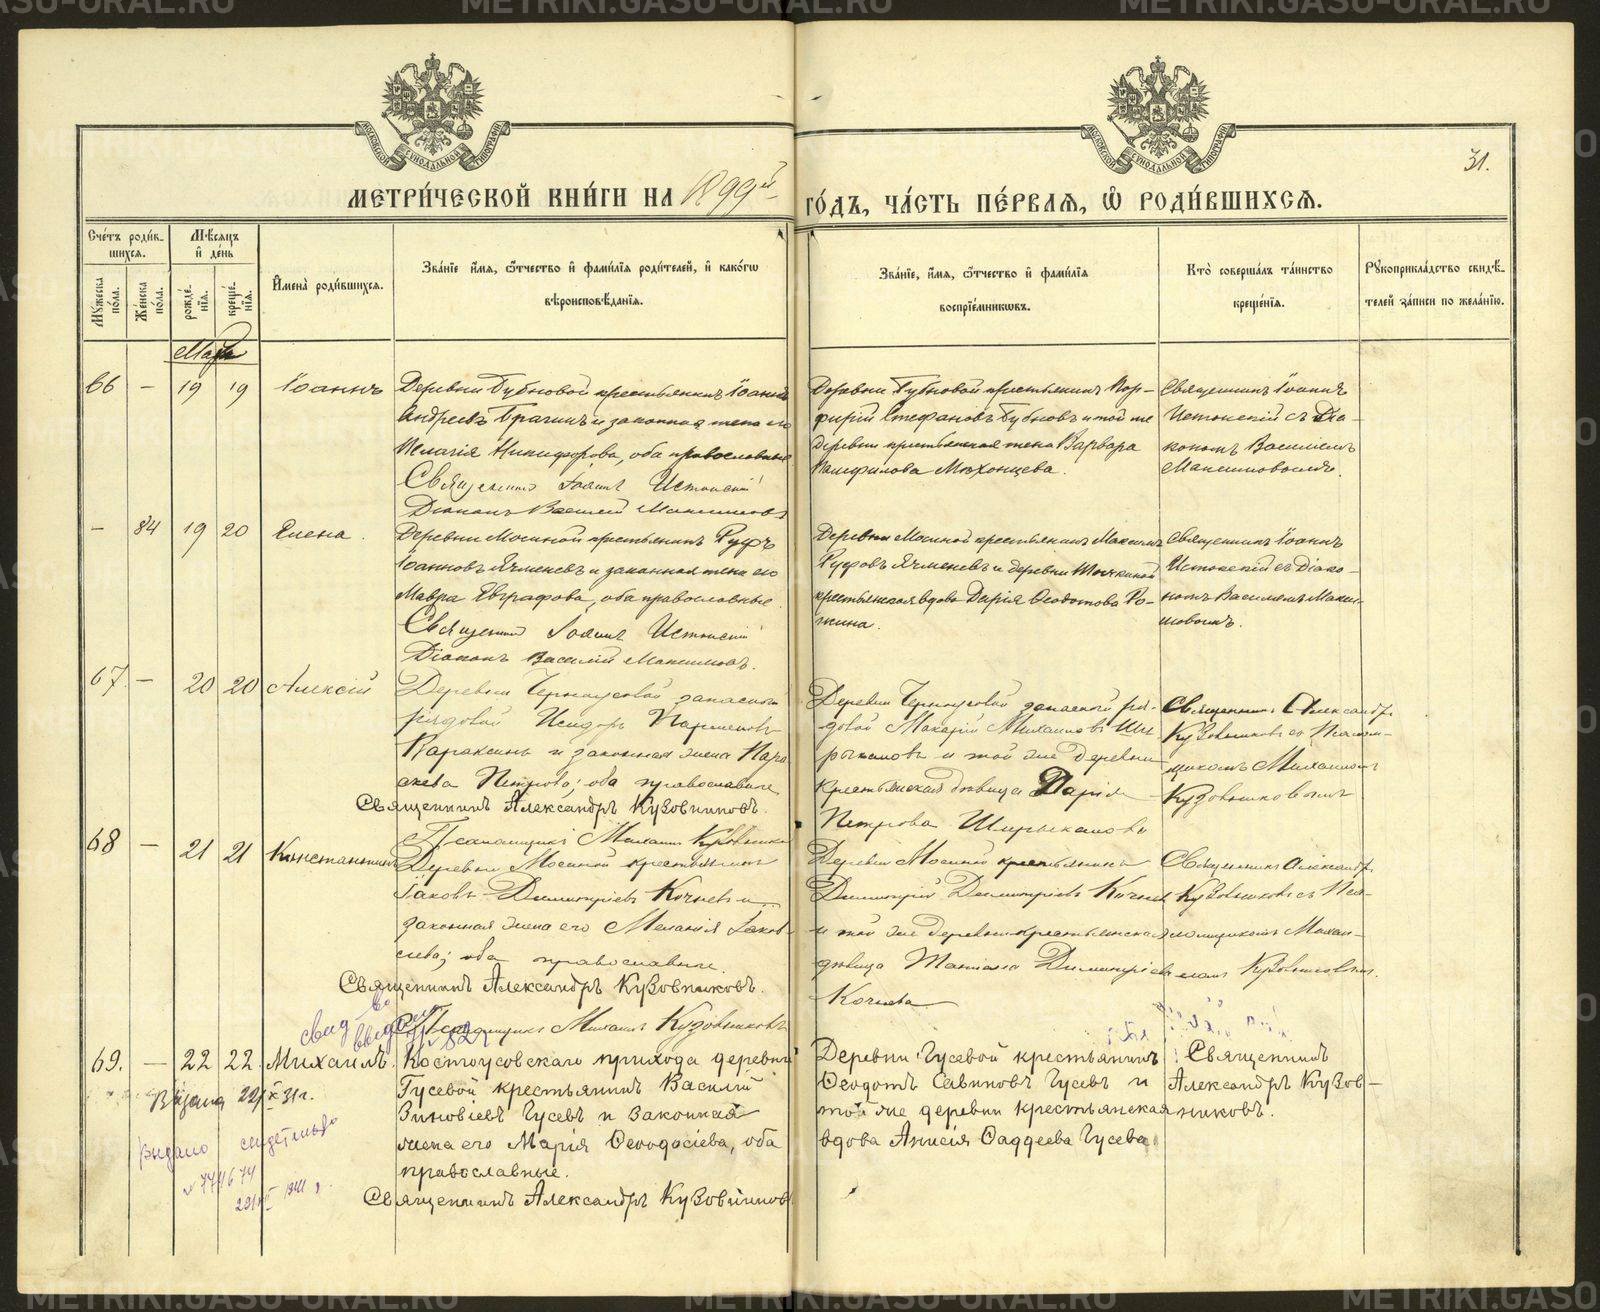 METRIKI.GASO-URAL.RU
МОСКОВСКОЙ СѴНОДАЛЬНОЙ ТИПОГРАФІИ
МОСКОВСКОЙ СѴНОДАЛЬНОЙ ТИПОГРАФІИ
31.
МЕТРИ́ЧЕСКОЙ КНИ́ГИ НА 1899й
ГО́ДЪ, ЧА́СТЬ ПЕ́РВАЯ, Ѡ҆ РОДИ́ВШИХСЯ.
Сче́тъ роди́в-
шихся.
Мѣ́сяцъ
и҆ де́нь
Му́жеска по́ла.
Же́нска по́ла.
рожде́-
нїя.
креще́-
нїя.
И҆мена̀ роди́вшихся.
Зва́нїе и҆́мя, ѻ҆́тчество и҆ фами́лїя роди́телей, и҆ како́гѡ
вѣроисповѣ́данїя.
Зва́нїе, и҆́мя, ѻ҆́тчество и҆ фами́лїя
воспрїе́мникѡвъ.
Кто̀ соверша́лъ та́инство
креще́нїя.
Рꙋкоприкла́дство свидѣ́-
телей за́писи по жела́нїю.
Мартъ
66 — 19 19 Іоаннъ
Деревни Бубновой крестьянинъ Іоаннъ
Андреевъ Брагинъ и законная жена его
Пелагія Никифорова, оба православные
Священникъ Іоаннъ Истокскій
Діаконъ Василій Максимовъ
Деревни Бубновой крестьянинъ Пор-
фирій Стефановъ Бубновъ и той же
деревни крестьянская жена Варвара
Памфилова
Священникъ Іоаннъ
Истокскій съ Діа-
кономъ Василіемъ
— 84 19 20 Елена.
Деревни Мосиной крестьянинъ Руфъ
Іоанновъ Ячменевъ и законная жена его
Мавра Евграфова, оба православные.
Священникъ Іоаннъ Истокскій
Діаконъ Василій Максимовъ.
Деревни Мосиной крестьянинъ Максимъ
Руфовъ Ячменевъ и деревни
крестьянская вдова Дарія Ѳеодотова Ро-
жина.
Священникъ Іоаннъ
Истокскій съ Діако-
номъ Василіемъ Макси-
мовымъ.
67. — 20 20 Алексій
Деревни Черноусовой запасный
рядовой Исидоръ Парменовъ
и законная жена Пара-
скева Петрова; оба православные
Священникъ Александръ Кузовниковъ.
Псаломщикъ Михаилъ Кузовников
Деревни Черноусовой запасный ря-
довой Макарій Михаиловъ Ши-
рыкаловъ и той же деревни
крестьянская девица Дарія
Петрова Ширыкалова
Священникъ Александръ
Кузовниковъ съ Псалом-
щикомъ Михаиломъ
Кузовниковымъ
68 — 21 21 Константинъ
Деревни Мосиной крестьянинъ
Іаковъ Димитріевъ Кочневъ и
законная жена его Меланія Іаков-
лева; оба православные.
Священникъ Александръ Кузовниковъ.
Псаломщикъ Михаилъ Кузовниковъ
Деревни Мосиной крестьянинъ
Димитрій Димитріевъ Кочнев
и той же деревни крестьянская
дѣвица Татіана Димитріева
Кочнева
Священникъ Александръ
Кузовниковъ съ Пса-
ломщикомъ Михаи-
ломъ Кузовниковым.
свид во
69. — 22 22. Михаилъ.
Костоусовскаго прихода деревни
Гусевой крестьянинъ Василій
Зиновіевъ Гусевъ и законная
жена его Марія Ѳеодосіева, оба
православные.
Священникъ Александръ Кузовников
Деревни Гусевой крестьянинъ
Ѳеодотъ Савиновъ Гусевъ и
той же деревни крестьянская
вдова Анисія Ѳаддеева Гусева
Священникъ
Александръ Кузов-
никовъ.
Выдана 22/X 31 г.
выдано свидетельство
№ 774674